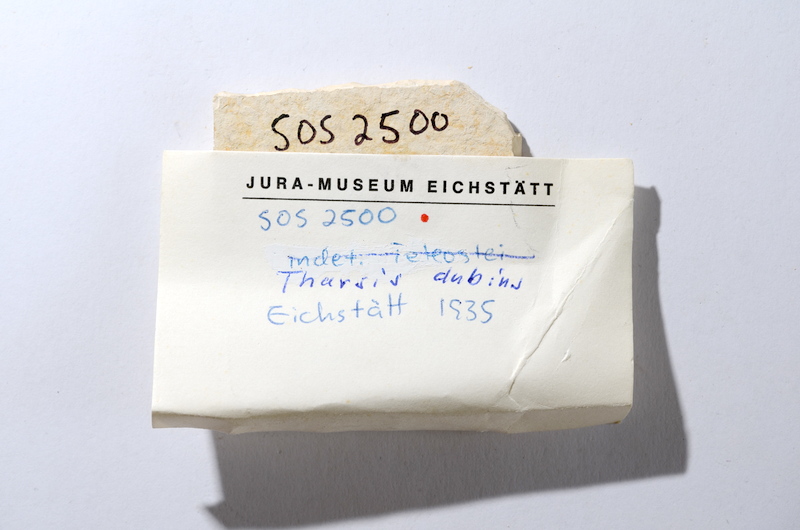 SOS 2500
JURA-MUSEUM EICHSTÄTT
SOS 2500
indet. Teleostei
Tharsis dubius
Eichstätt 1935